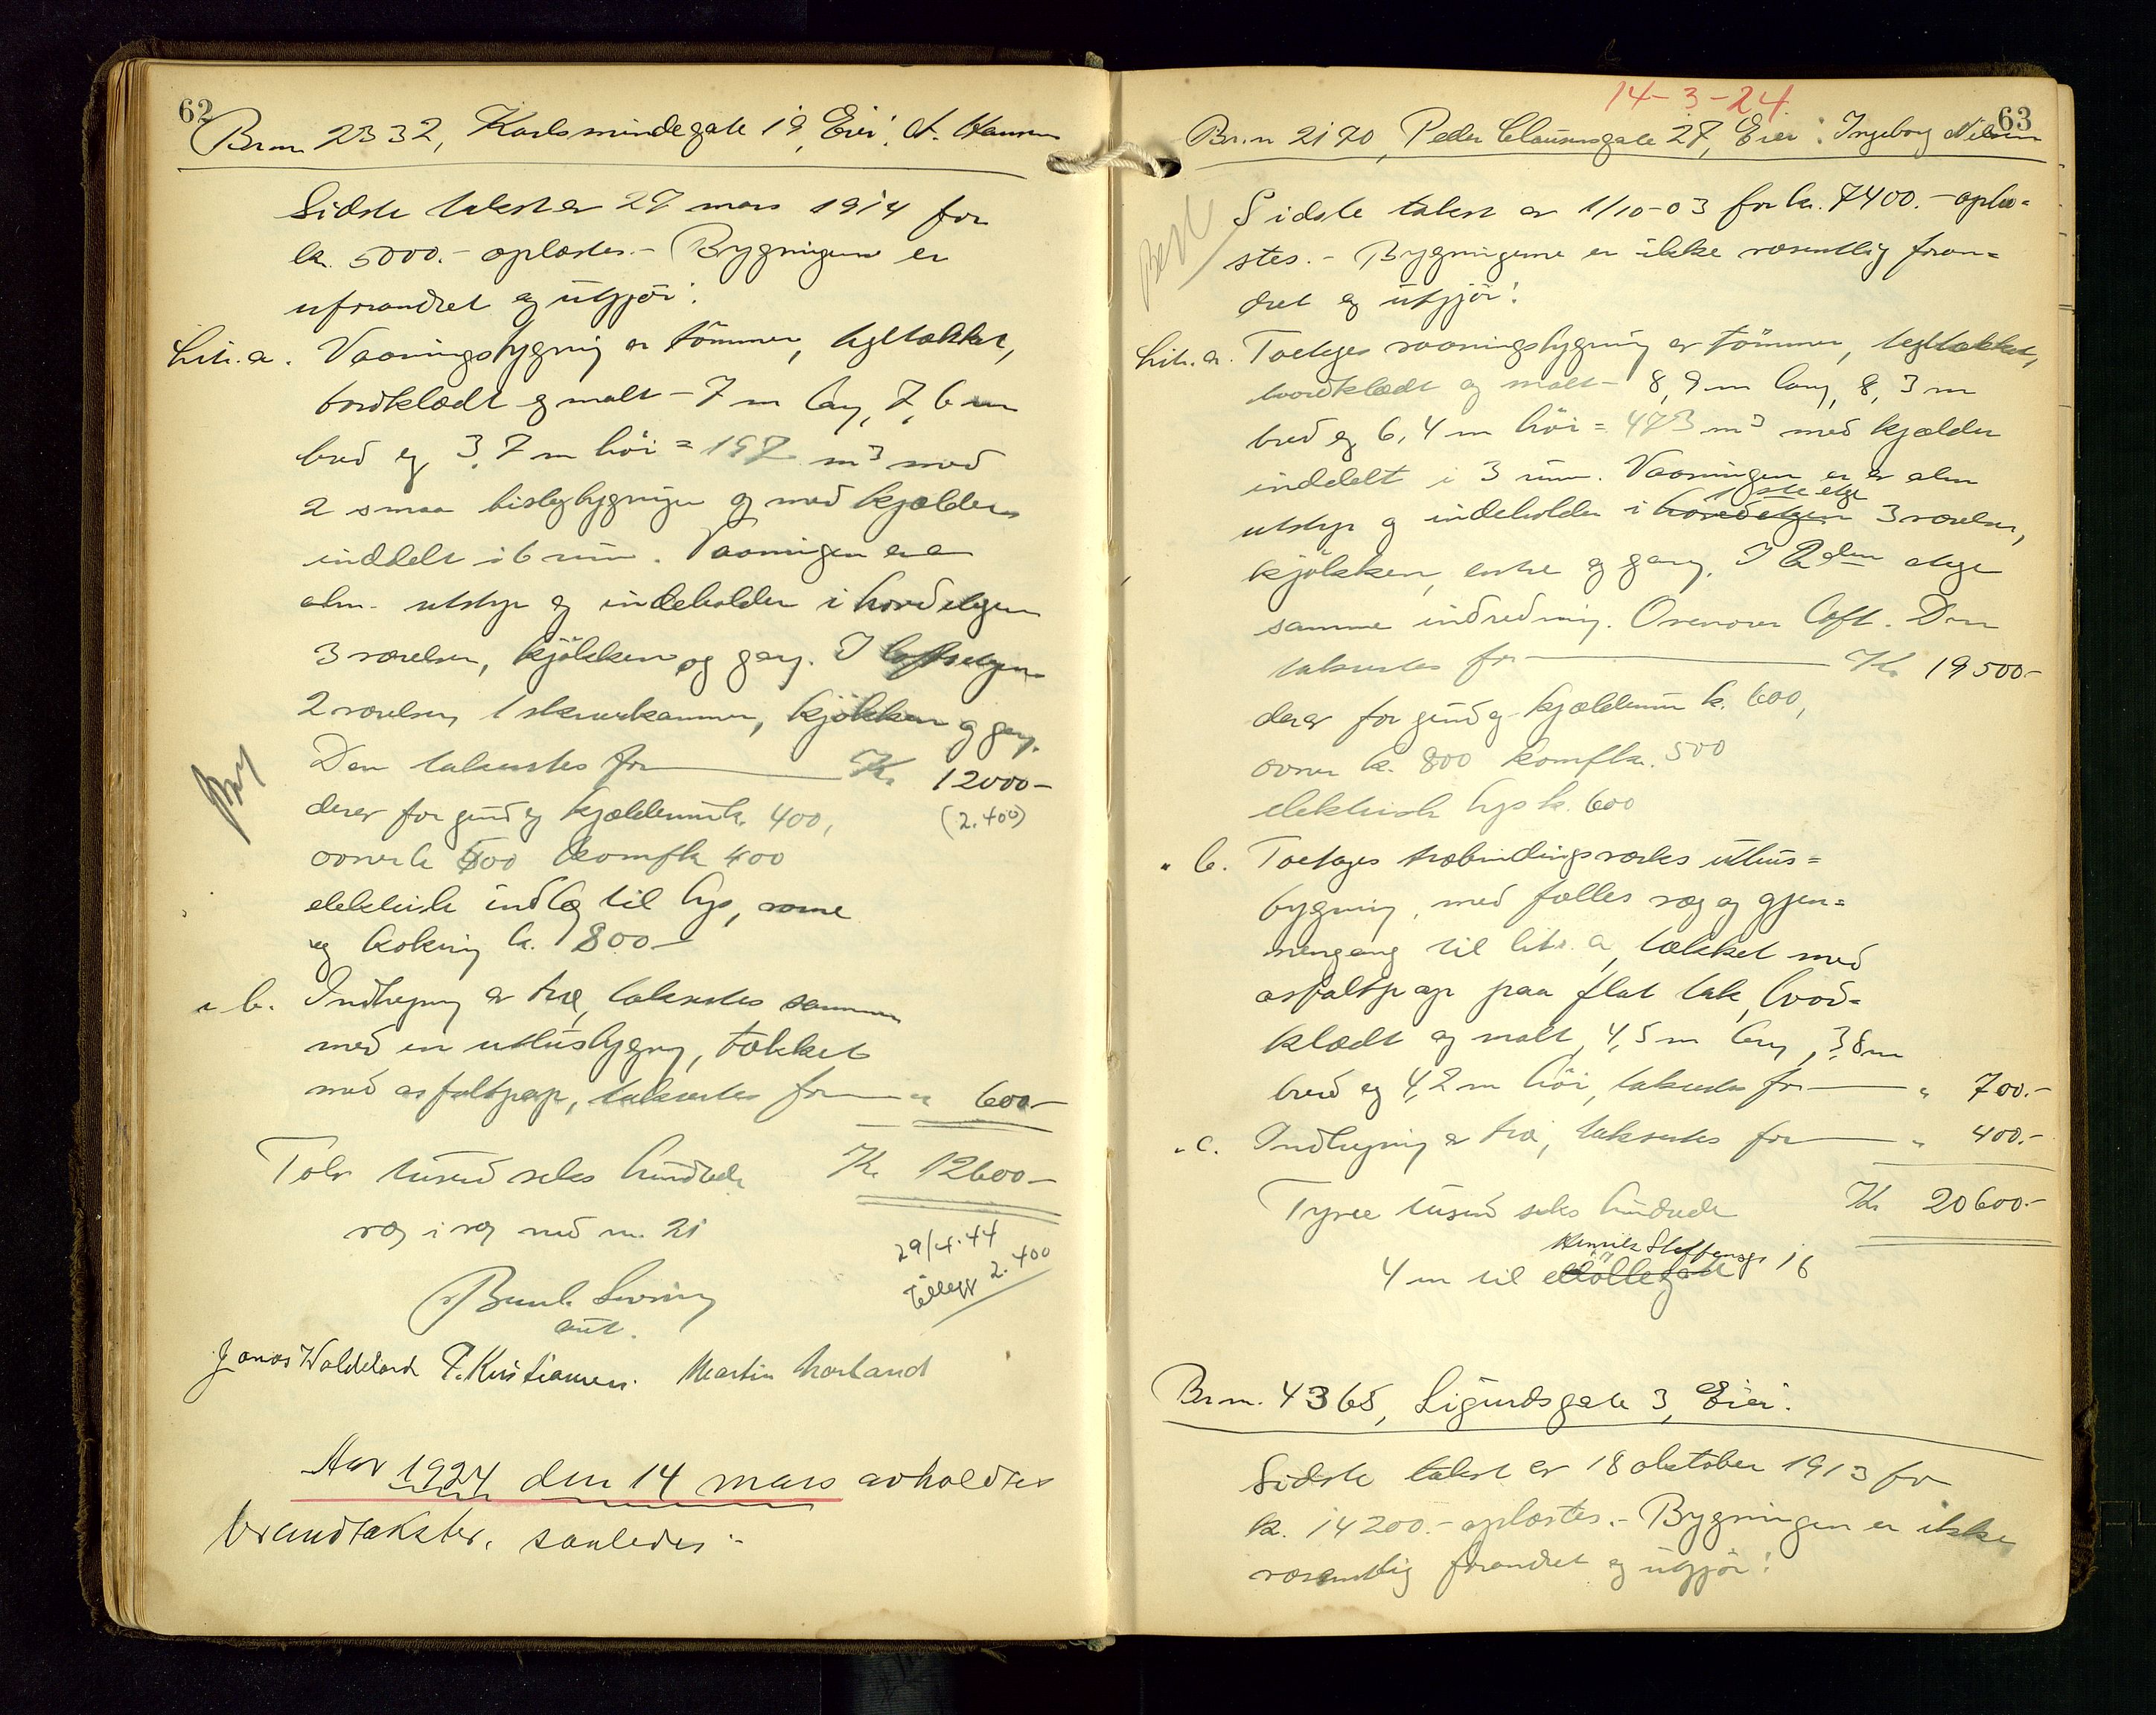 62
Br.nr. 2332, Karlsmindegate 19, Eier: A. Hansen
Sidste takst er 27 mars 1914 for
kr. 5000.- oplæstes.- Bygningene er
uforandret og utgjør:
Litr. a. Vaaningsbygning av tømmer, tegltækket,
bordklædt og malt - 7 m lang, 7,6 m
bred og 3,7 m høi = 197 m³ med
2 smaa bislagbygninger og med kjælder
inddelt i 6 rum. Vaaningen er av
alm. utstyr og indeholder i hovedetagen
3 værelser, kjøkken og gang. I loftsetagen
2 værelser, 1 skraakammer, kjøkken og gang.
Den takseres for Kr. 12000-
derav for grund og kjælderrum kr. 400, (2.400)
ovner kr 500 komfkr 400
elektrisk indlæg til lys, varme
og kokning kr. 1800-
" b. Indhegning av træ, takseres sammen
med en uthusbygning, tækket
med asfaltpap, takseres for " 600-
Tolv tusend seks hundrede Kr. 12600-
væg i væg med nr. 21
29/4.44
tillegg 2.400
Bernh. Sivring
aut.
Jonas Waldeland P. Kristiansen. Martin Norland
Aar 1924 den 14 mars avholdtes
brandtakster, saaledes:-
14-3-24.
63
Br.nr 2170, Peder Claussønsgate 27, Eier: Ingeborg Nilsen
Sidste takst er 1/10-03 for kr. 7400.- oplæ=
stes.- Bygningerne er ikke væsentlig foran=
dret og utgjør:
Litr. a. Toetages vaaningsbygning av tømmer, tegltækket,
bordklædt og malt - 8,9 m lang, 8,3 m
bred og 6,4 m høi = 473 m³ med kjælder
inddelt i 3 rum. Vaaningen er av alm
utstyr og indeholder i hovedetagen 1ste etge 3 værelser,
kjøkken, entre og gang. I 2den etage
samme indredning. Ovenover loft. Den
takseres for Kr. 19500-
derav for grund og kjælderrum kr. 600,
ovner kr. 800 komfkr. 500
elektrisk lys kr. 600
" b. Toetages træbindingsverks uthus=
bygning, med fælles væg og gjen=
nemgang til litr. a, tækket med
asfaltpap paa flat tak, bord=
klædt og malt, 4,5 m lang, 3,8 m
bred og 4,2 m høi, takseres for " 700.-
" c. Indhegning av træ, takseres for " 400.-
Tyve tusend seks hundrede Kr 20600.-
4 m til Møllegate Henrik Steffensgt 16
Br.nr. 4365, Sigurdsgate 3, Eier:
Sidste takst er 18 oktober 1913 for
kr. 14200.- oplæstes.- Bygningen er ikke
væsentlig forandret og utgjør: